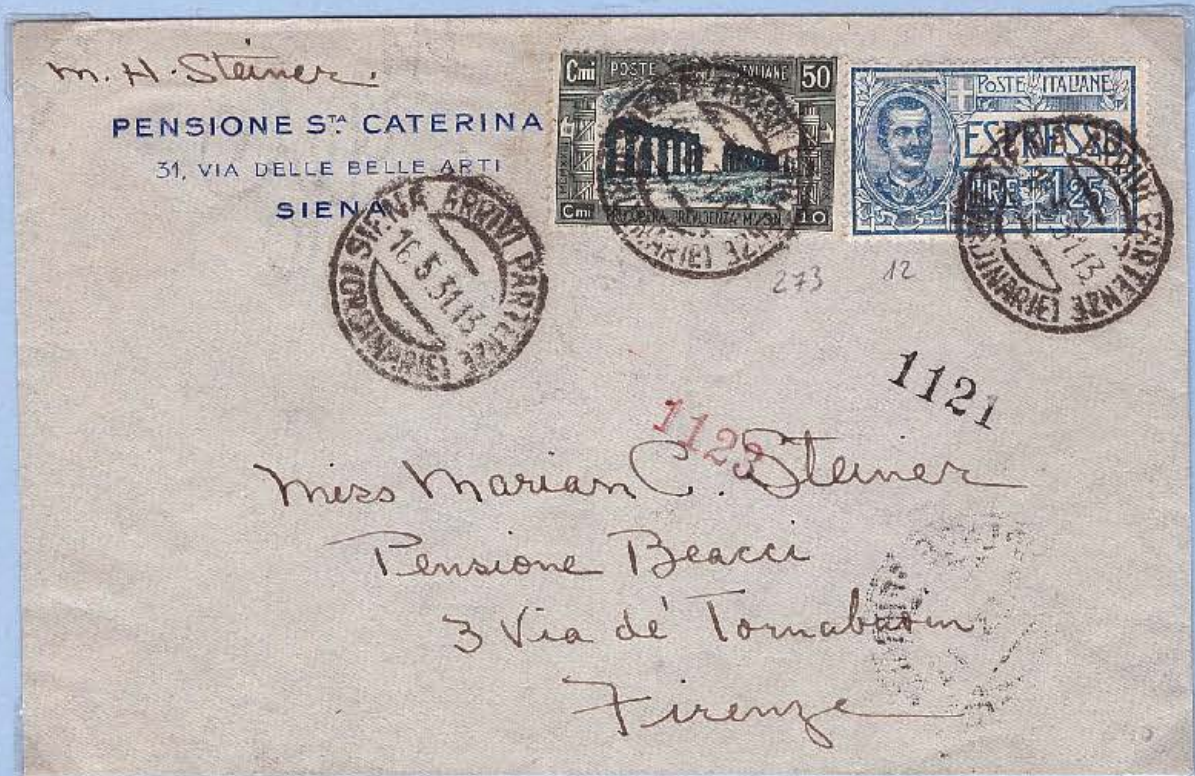 M. H. Steiner.
PENSIONE STA. CATERINA
31, VIA DELLE BELLE ARTI
SIENA
Cmi POSTE ITALIANE 50
Cmi PREVIDENZA 10
POSTE ITALIANE
ESPRESSO
LIRE 1,25
SIENA ARRIVI PARTENZE (ORDINARIE)
16.5.31.13
273
12
1121
1123
Miss Marian C. Steiner
Pensione Beacci
3 Via dé Tornabuoni
Firenze